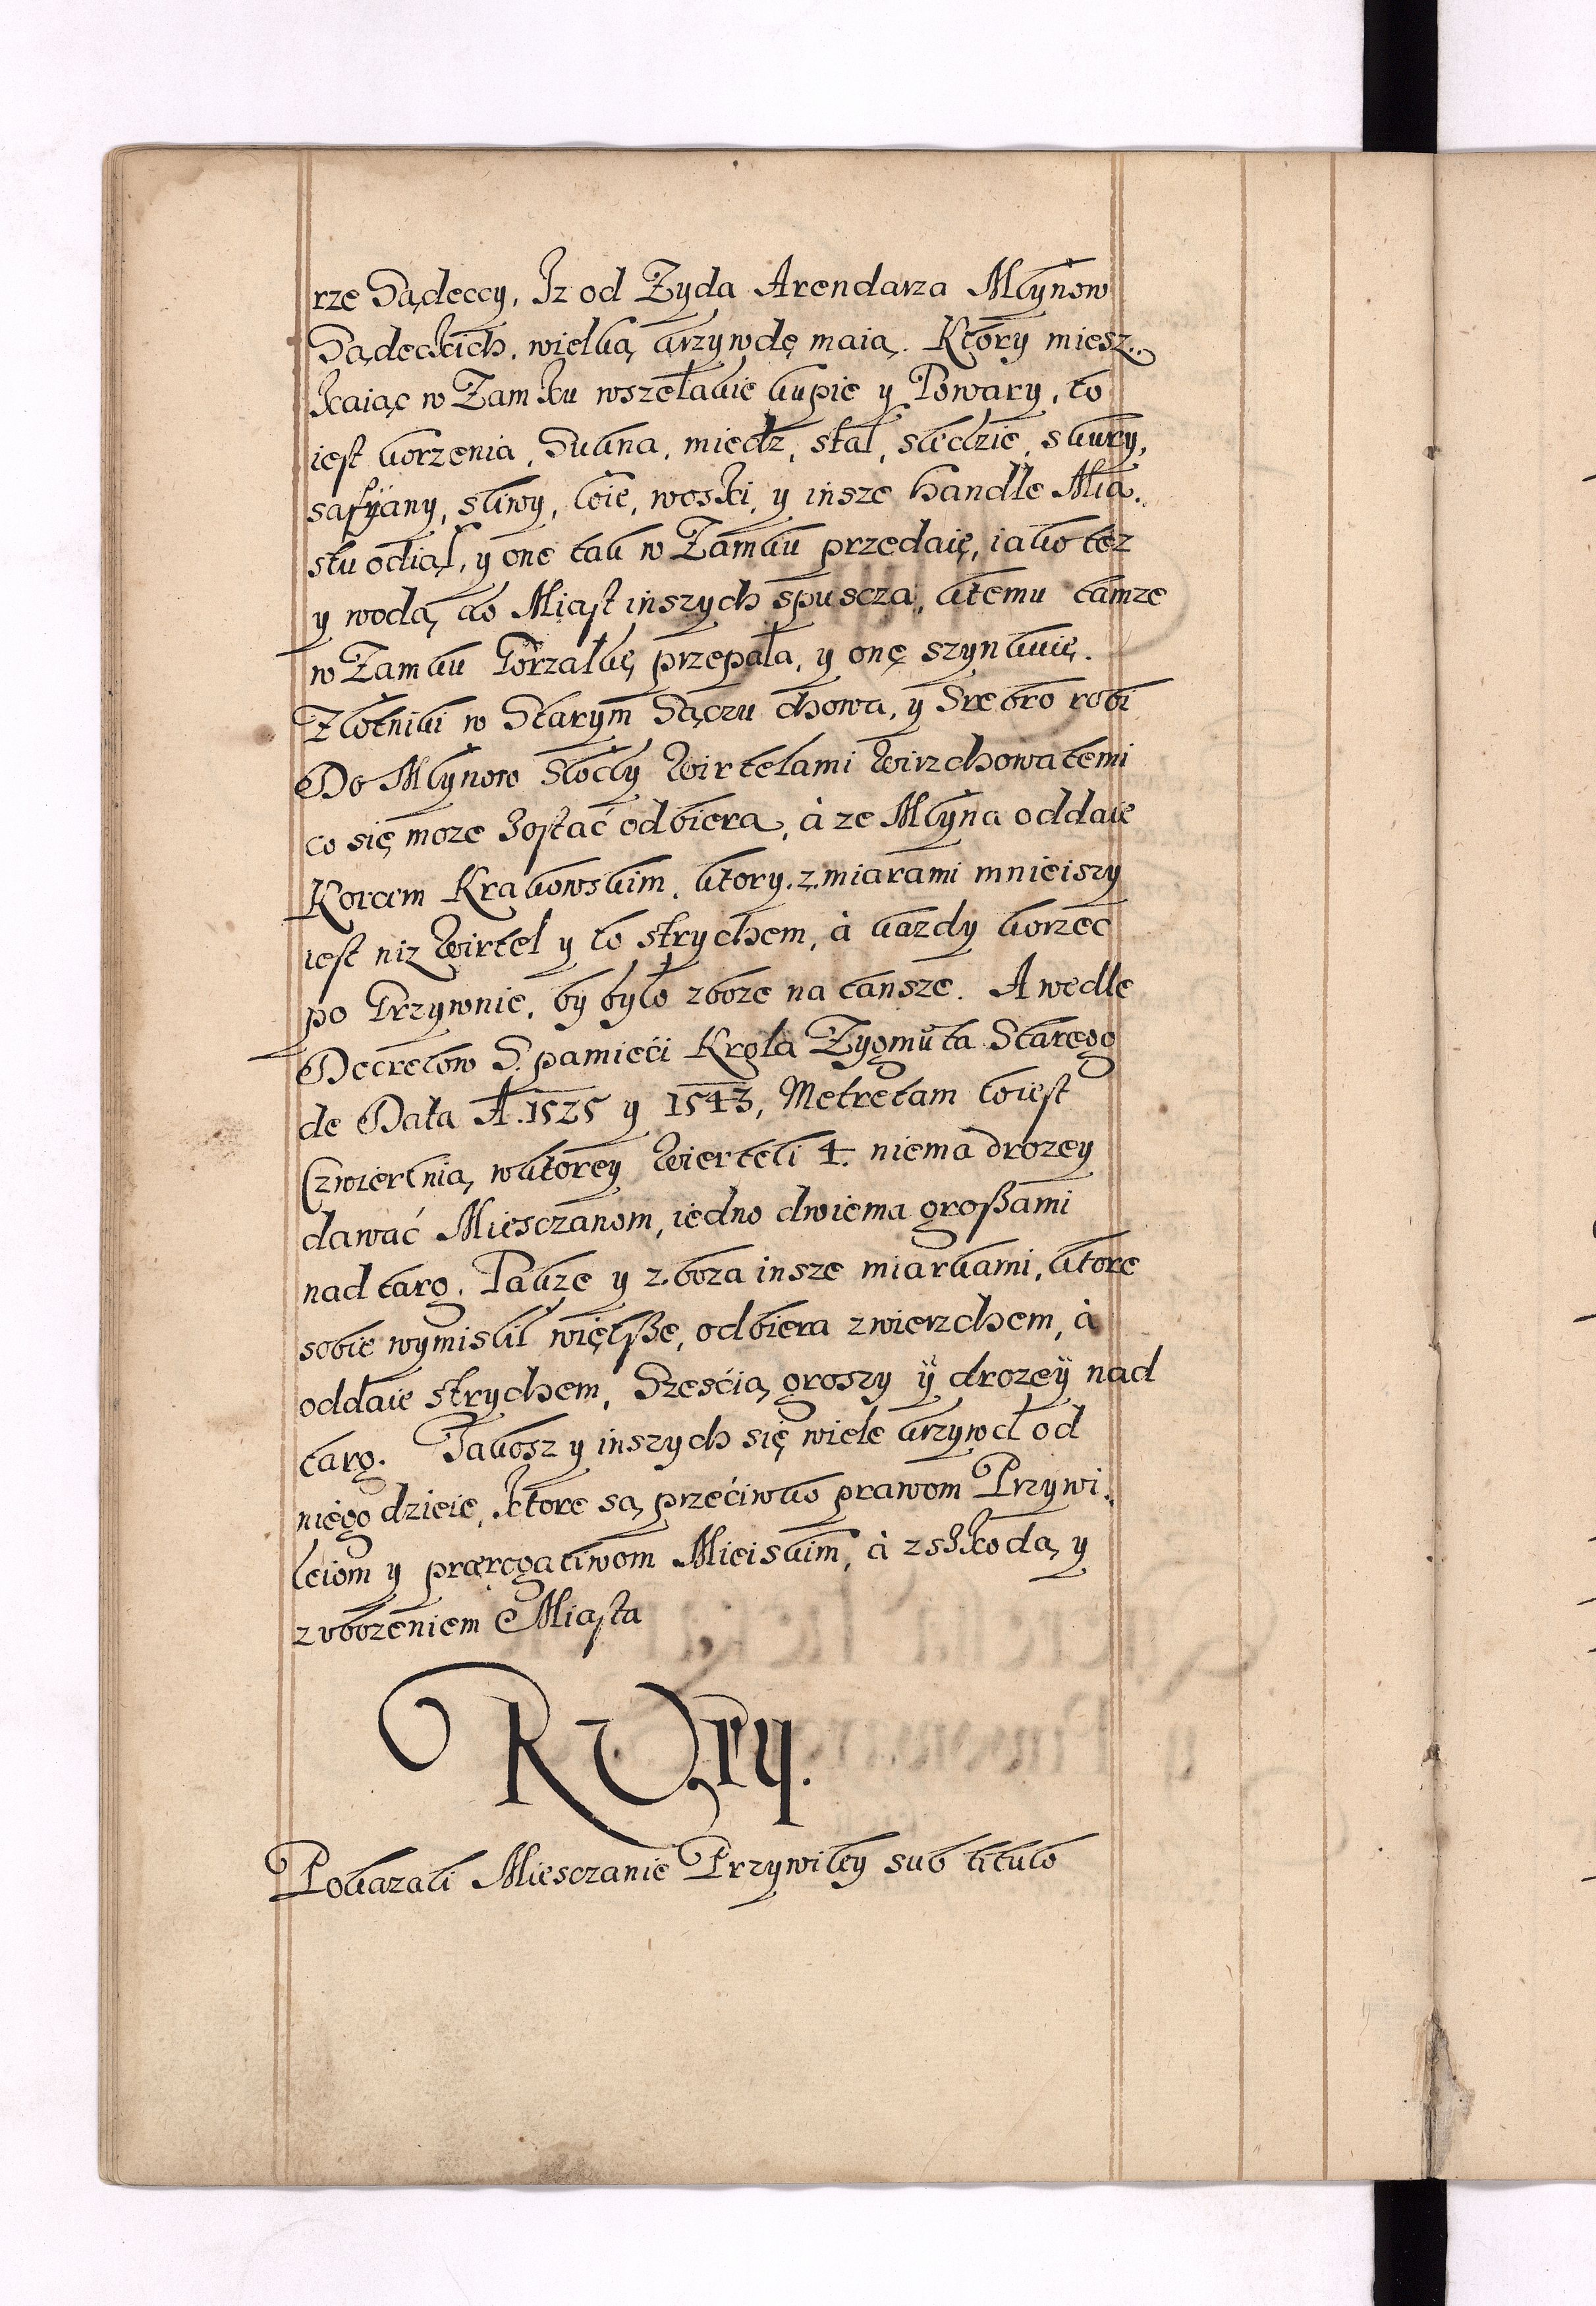 rze Sądeccy, Iz od Zyda Arendarza Młynow
Sądeckich, wielką krzywdę maią. Ktory miesz..
kaiąc w Zamku wszełakie kupie y Towary, to
iest korzenia, Sukna, miedz, stal, sledzie, skury,
safÿany, sliwy, łoie, woski, y insze handle Mia..
stu odiął, y one tak w Zamku przedaię, iako tez
y wodą do Miast inszych spuscza, ktemu tamze
w Zamku Gorzałkę przepala, y onę szynkuię.
Złotniki w Starym Sączu chowa, y Srebro robi
Do Młynow Słody Wirtelami Wirzchowatemi
co się moze zostać odbiera, à ze Młyna oddaie
Korcem Krakowskim, ktory z miarami mnieiszy
iest niz Wirtel y to strychem, à kazdy korzec
po Grzywnie, by było zboze na tansze. A wedle
Decretow S. pamieći Krola Zygmũta Starego
de Data A. 1525 y 1543, Metretam to iest
Czwiertnią, w ktorey Wierteli 4. niema drozey
dawać Miesczanom, iedno dwiema großami
nad targ. Takze y zboza insze miarkami, ktore
sobie wymislił więtsße, odbiera z wierzchem, à
oddaie strychem, Sześcią groszy ÿ drozeÿ nad
targ. Jakosz y inszych się wiele krzywd od
niego dzieie, ktore są przećiwko prawom Przywi..
leiom y prærogatiwom Mieiskim, à z szkodą y
z vbozeniem Miasta
Ktory.
Pokazali Miesczanie Przywiley sub titulo